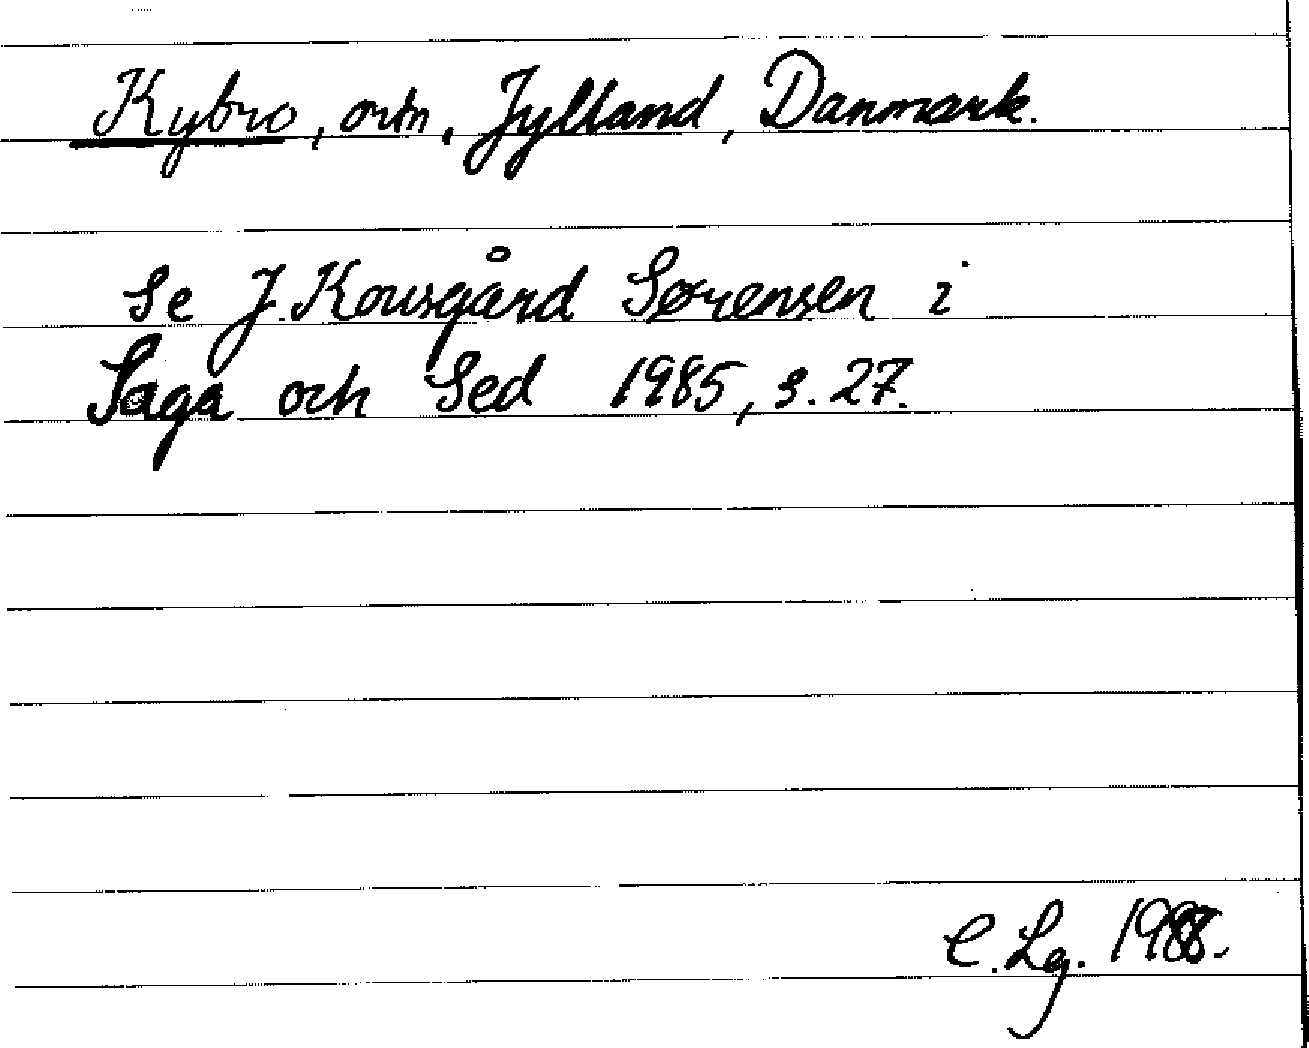 Kybro, ortn, Jylland, Danmark.
Se J. Kousgård Sørensen i
Saga och Sed 1985, s. 27.
C. Lg. 1988.